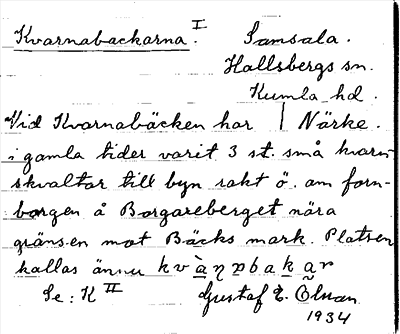 Kvarnabackarna. I
Samsala.
Hallsbergs sn.
Kumla hd.
Närke.
Vid Kvarnabäcken har
i gamla tider varit 3 st. små kvarn-
skvaltor till byn rakt ö. om forn-
borgen å Borgareberget nära
gränsen mot Bäcks mark. Platsen
kallas ännu
Se: K II
Gustaf E.
1934